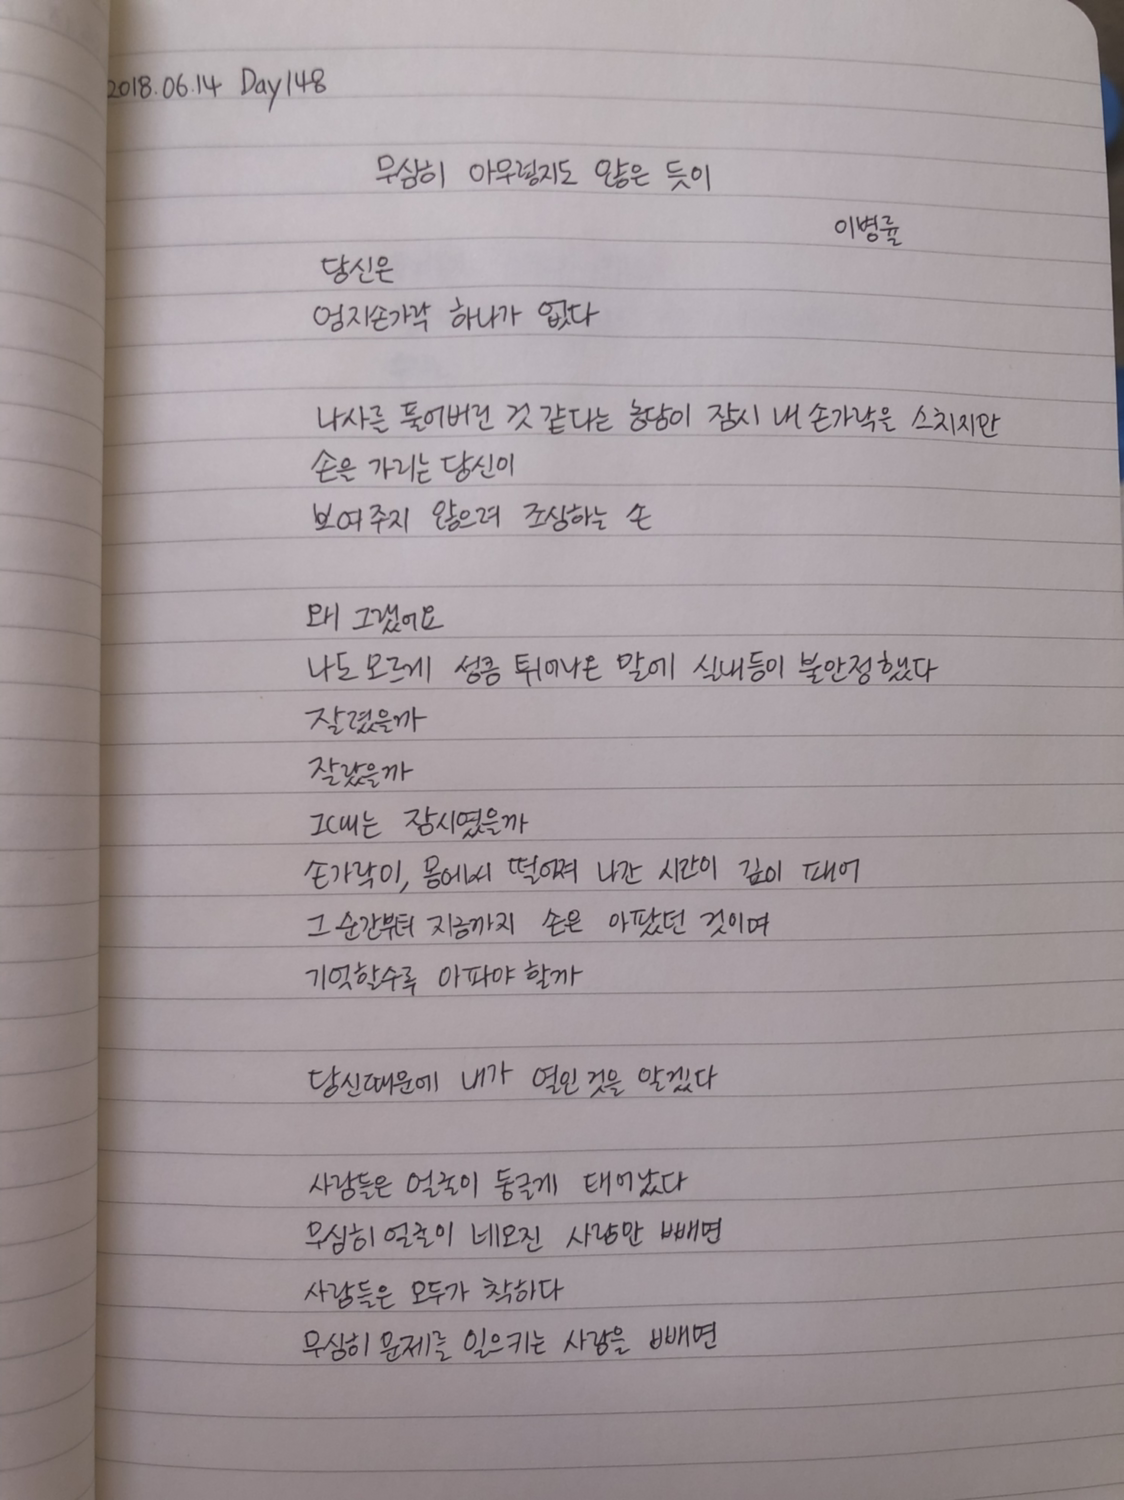 2018.06.14 Day148
무심히 아무렇지도 않은 듯이
이병률
당신은
엄지손가락 하나가 없다
나사를 풀어버린 것 같다는 농담이 잠시 내 손가락을 스치지만
손을 가리는 당신이
보여주지 않으려 조심하는 손
왜 그랬어요
나도 모르게 성큼 튀어나온 말에 실내등이 불안정했다
잘렸을까
잘랐을까
그때는 잠시였을까
손가락이, 몸에서 떨어져 나간 시간이 깊이 패어
그 순간부터 지금까지 손은 아팠던 것이며
기억할수록 아파야 할까
당신때문에 내가 열인 것을 알겠다
사람들은 얼굴이 둥글게 태어났다
무심히 얼굴이 네모진 사람만 빼면
사람들은 모두가 착하다
무심히 문제를 일으키는 사람을 빼면